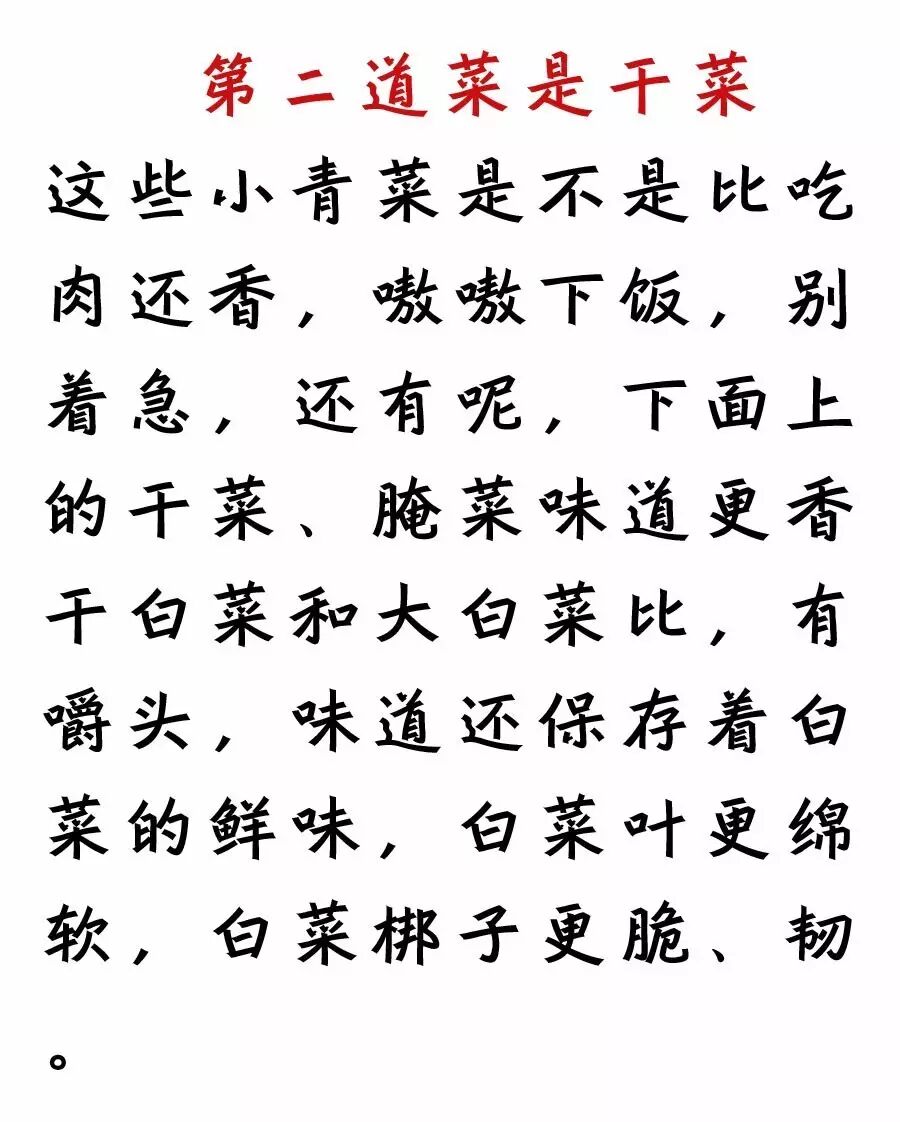 第二道菜是干菜
这些小青菜是不是比吃
肉还香，嗷嗷下饭，别
着急，还有呢，下面上
的干菜、腌菜味道更香
干白菜和大白菜比，有
嚼头，味道还保存着白
菜的鲜味，白菜叶更绵
软，白菜梆子更脆、韧
。